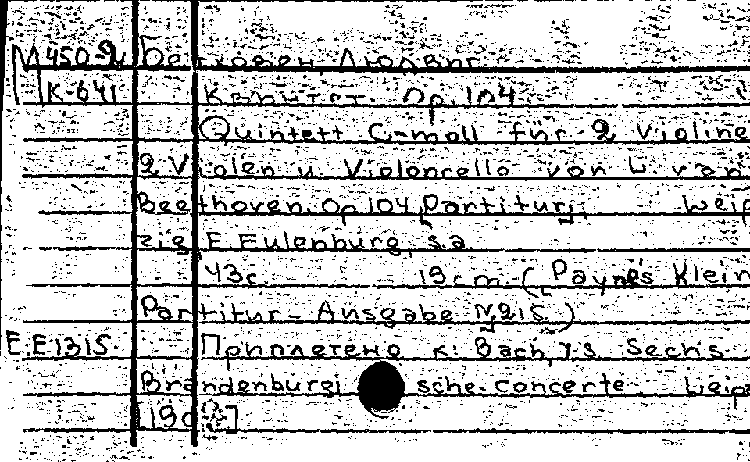 М450 Бетховен, Людвиг
К-641 Квинтет. Op. 104.
Quintett C-moll für 2 Violine
2 Violen u. Violoncello von L. van
Beethoven. Op 104, Partitur. Leip
zig, E. Eulenburg, s.a.
43с. 19cm (Payne's Klein
Partitur-Ausgabe №215)
E.E1315. Приплетено к: Bach, J.S. Sechs
Brandenburgi sche concerte. Leip